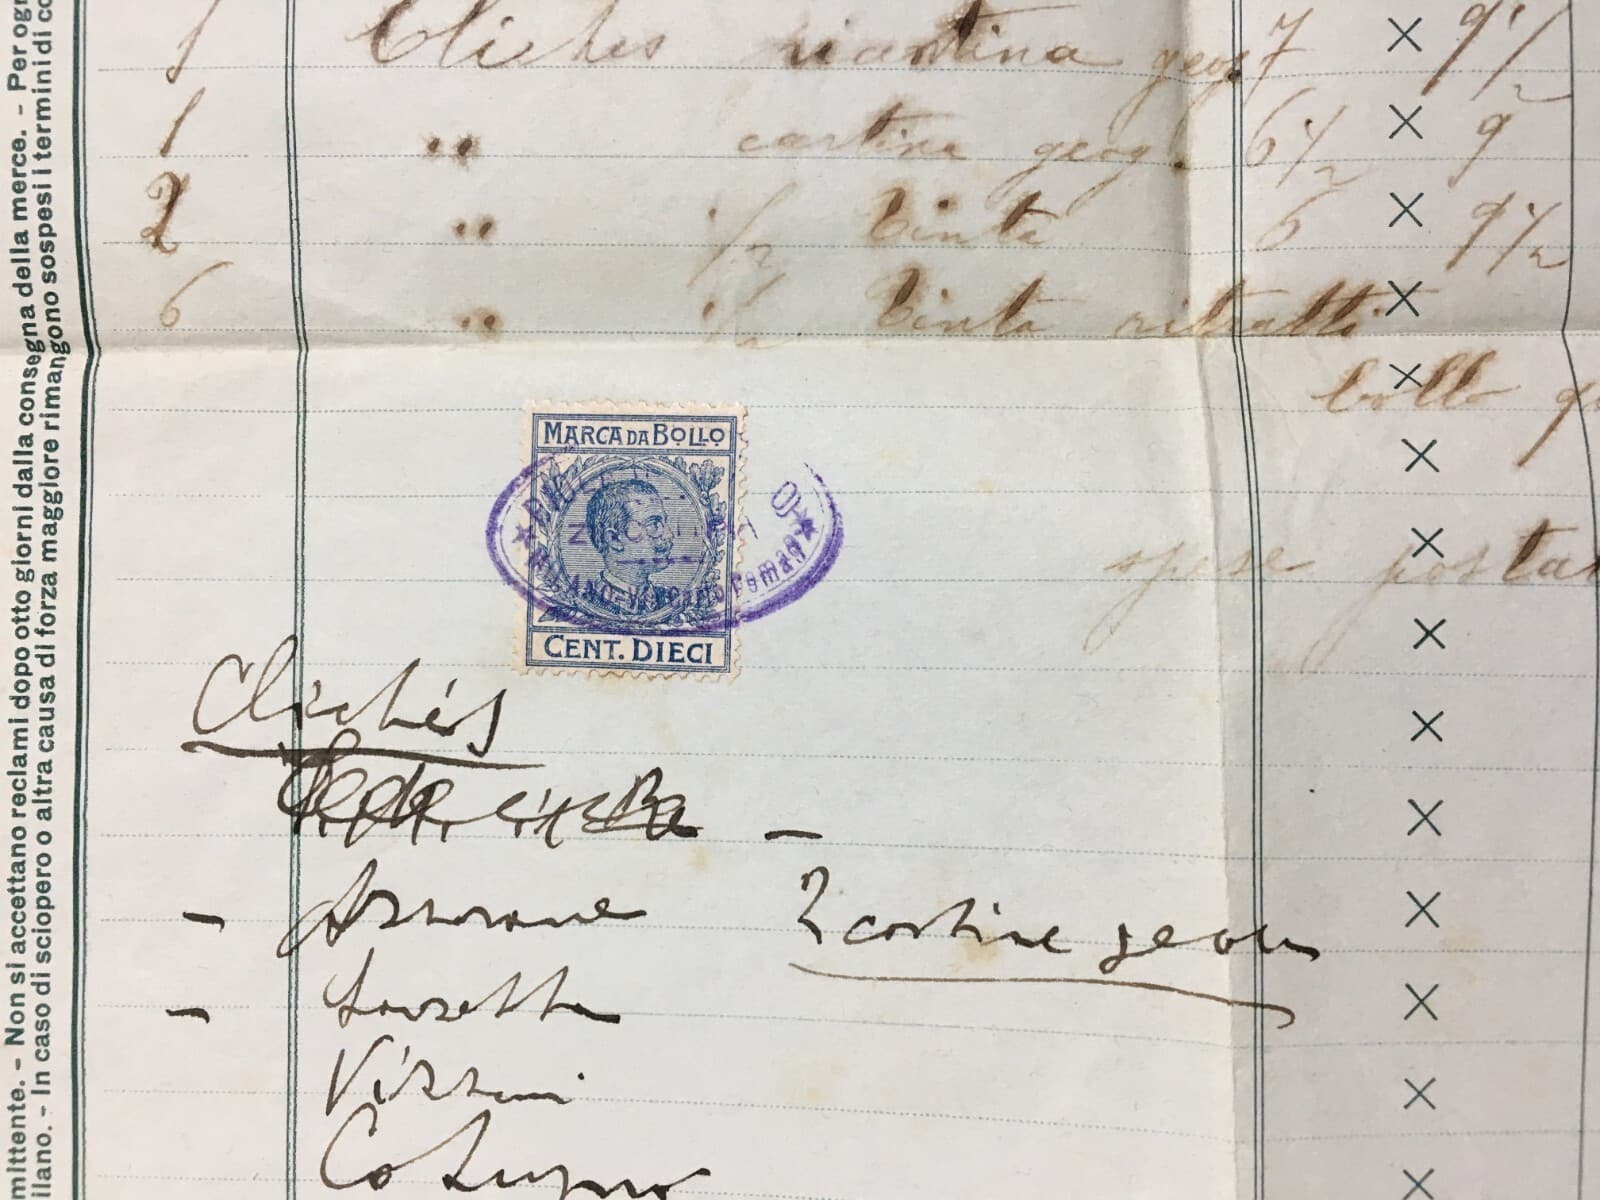 mittente. - Non si accettano reclami dopo otto giorni dalla consegna della merce. - Per ogn
ilano. - In caso di sciopero o altra causa di forza maggiore rimangono sospesi i termini di co
1 Clichés cartina geog. 7 × 9 1/2
1 " cartina geog. 6 1/2 × 9
2 " 1/2 tinta 6 × 9 1/2
6 " 1/2 tinta ritratti ×
bollo ×
spese postal
MARCA DA BOLLO
MILANO - Via Carlo
CENT. DIECI
×
×
×
Clichés ×
×
- 2 cartine geog ×
- ×
Vizzini ×
Cotugno ×